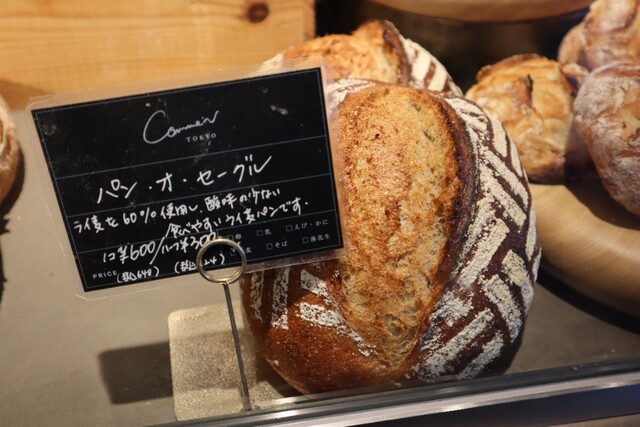 Comme'N
TOKYO
パン・オ・セーグル
ライ麦を60%使用し、酸味の少ない
食べやすいライ麦パンです。
1コ¥600/ハーフ¥300
□卵 □乳 □えび・かに
□そば □落花生
PRICE (税込648)